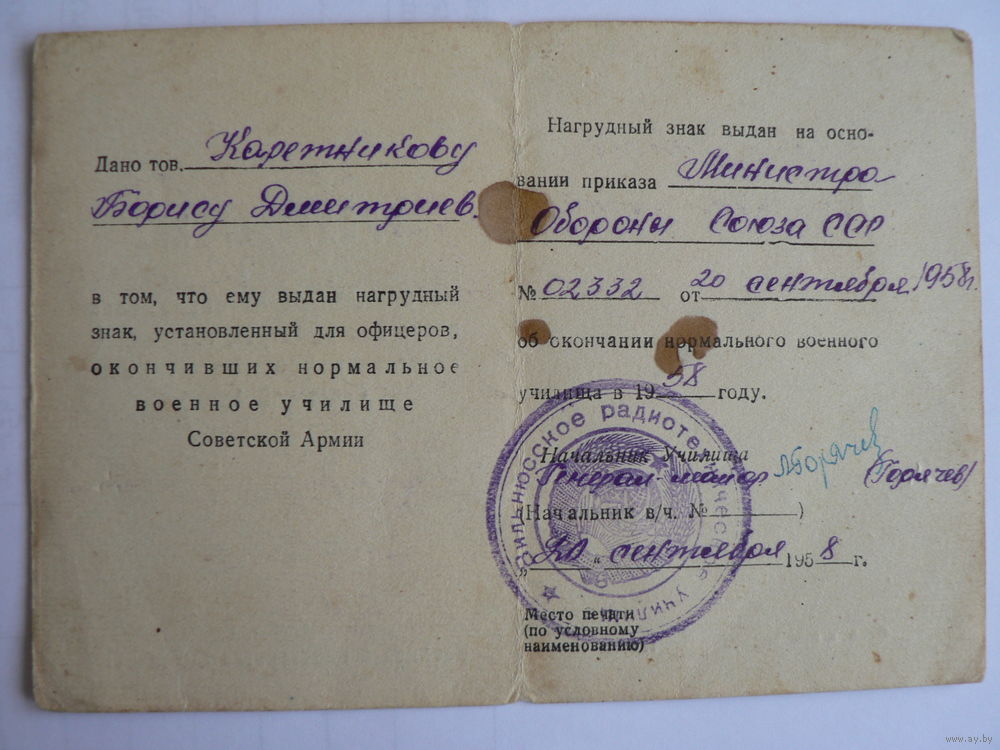 Дано тов. Каретникову
Борису Дмитриев.
в том, что ему выдан нагрудный
знак, установленный для офицеров,
окончивших нормальное
военное училище
Советской Армии
Нагрудный знак выдан на осно-
вании приказа Министра
Обороны Союза ССР
№ 02332 от 20 сентября 1958г.
об окончании нормального военного
училища в 1958 году.
Начальник Училища
Генерал-майор Горячев (Горячев)
(Начальник в/ч. № )
„20“ сентября 1958 г.
Место печати
(по условному
наименованию)
Вильнюсское радиотехническое училище
www.ay.by